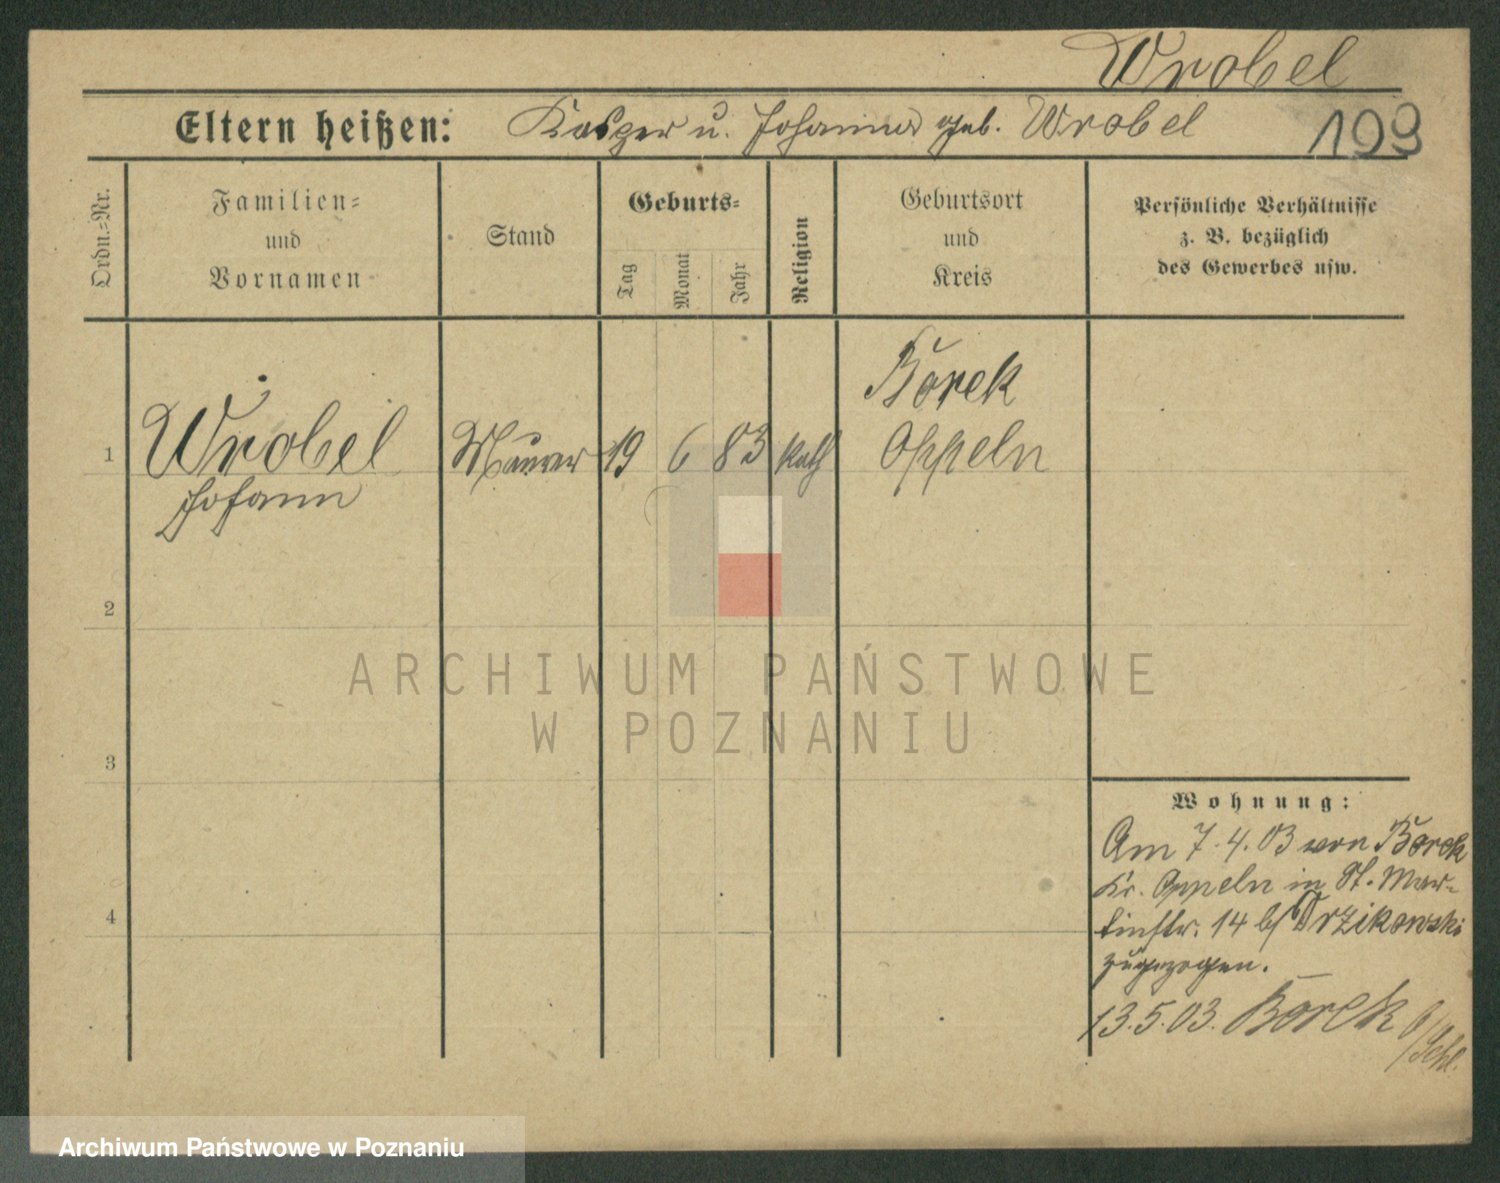 Wrobel
Eltern heißen: Kasper u. Johanna geb. Wrobel
199
Ordn.-Nr.
Familien-
und
Vornamen
Stand
Geburts-
Tag
Monat
Jahr
Religion
Geburtsort
und
Kreis
Persönliche Verhältnisse
z. B. bezüglich
des Gewerbes usw.
Borek
1 Wrobel Maurer 19 6 83 kath Oppeln
Johann
2
ARCHIWUM PAŃSTWOWE
W POZNANIU
3
Wohnung:
Am 7.4.03 von Borek
Kr. Oppeln in St. Mar-
4
tinstr. 14 b/ Drzikowski
zugezogen.
13.5.03. Borek
Archiwum Państwowe w Poznaniu